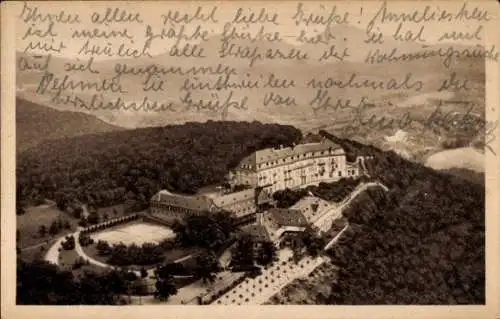 Ihnen allen recht liebe Grüße! Anneliesken
ist meine große Stütze hier. Sie hat mit
mir treulich alle Strapazen der Wohnungssuche
auf sich genommen
Nehmen Sie einstweilen nochmals die
herzlichsten Grüße von Ihrer